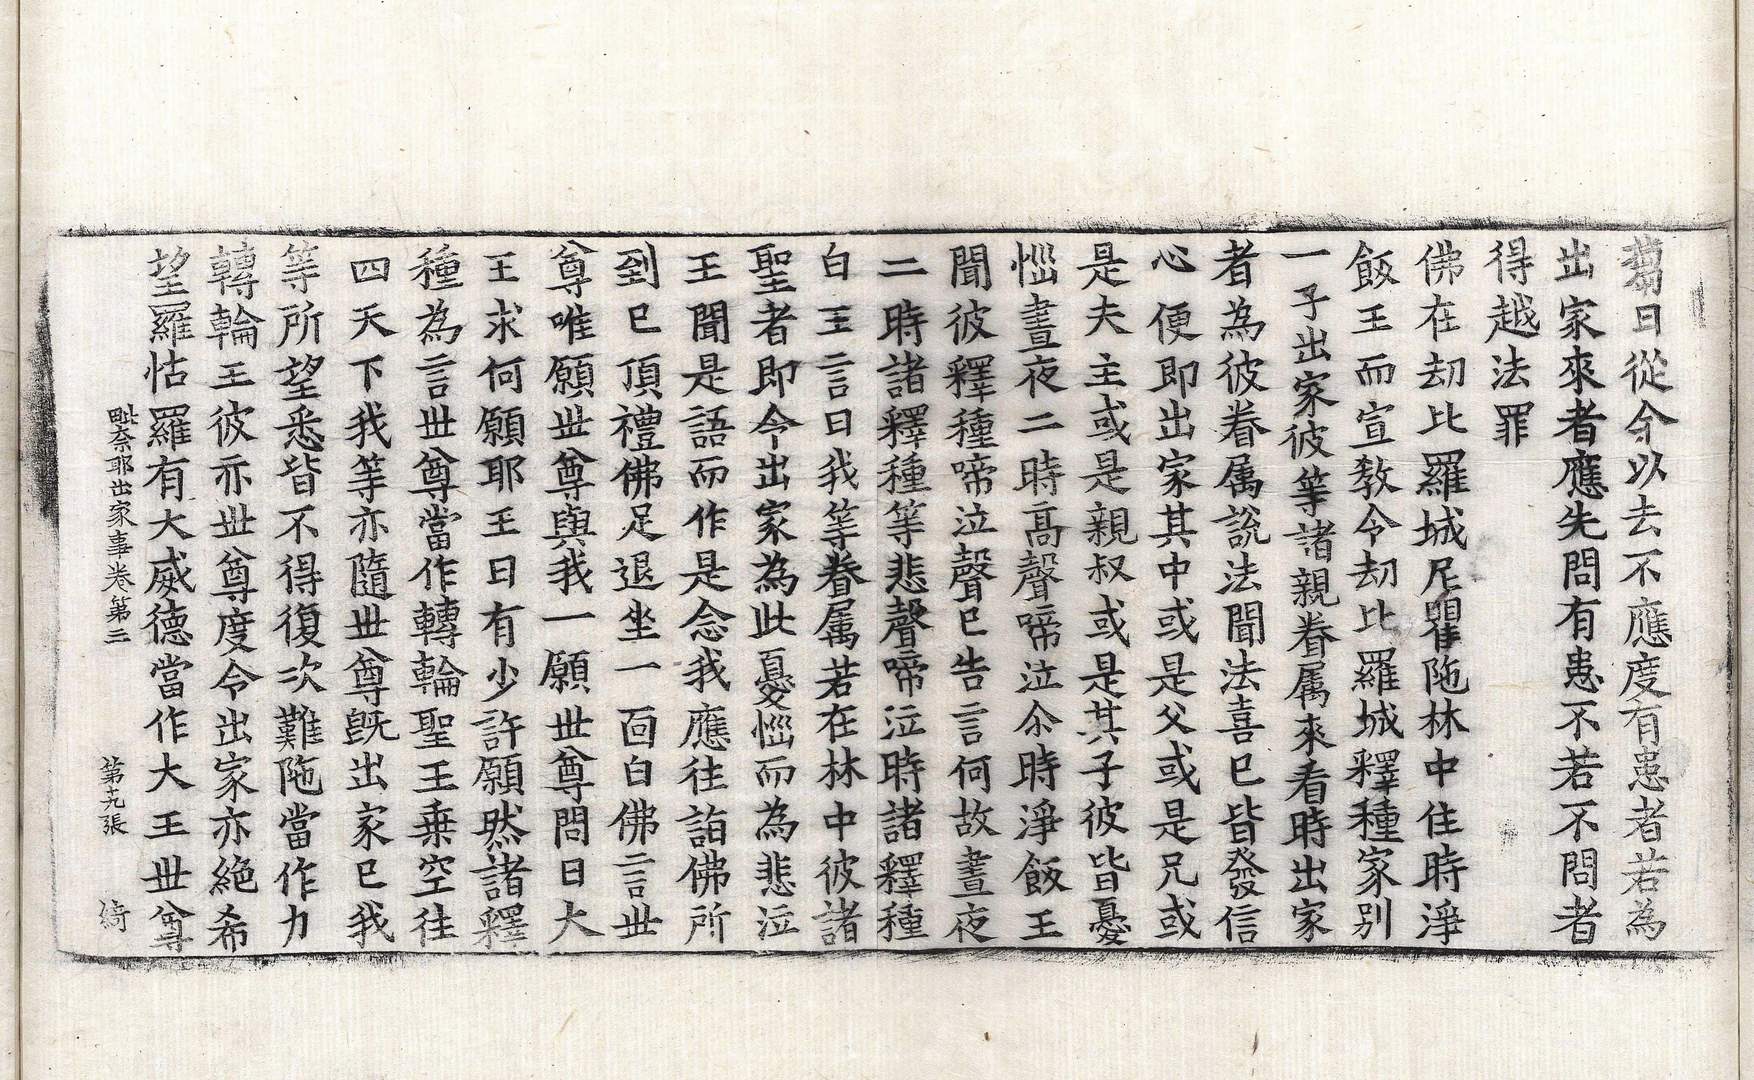 蒭曰從今以去不應度有患者若為
出家來者應先問有患不若不問者
得越法罪
佛在劫比羅城尼瞿陁林中住時淨
飯王而宣教令劫比羅城釋種家別
一子出家彼等諸親眷属來看時出家
者為彼眷属說法聞法喜已皆發信
心便即出家其中或是父或是兄或
是夫主或是親叔或是其子彼皆憂
惱晝夜二時高聲啼泣尒時淨飯王
聞彼釋種啼泣聲已告言何故晝夜
二時諸釋種等悲聲啼泣時諸釋種
白王言曰我等眷属若在林中彼諸
聖者即令出家為此憂惱而為悲泣
王聞是語而作是念我應往詣佛所
到已頂禮佛足退坐一面白佛言世
尊唯願世尊與我一願世尊問曰大
王求何願耶王曰有少許願然諸釋
種為言世尊當作轉輪聖王乗空往
四天下我等亦隨世尊旣出家已我
等所望悉皆不得復次難陁當作力
轉輪王彼亦世尊度令出家亦絶希
望羅怙羅有大威德當作大王世尊
毗奈耶出家事卷第三 第十九張 綺